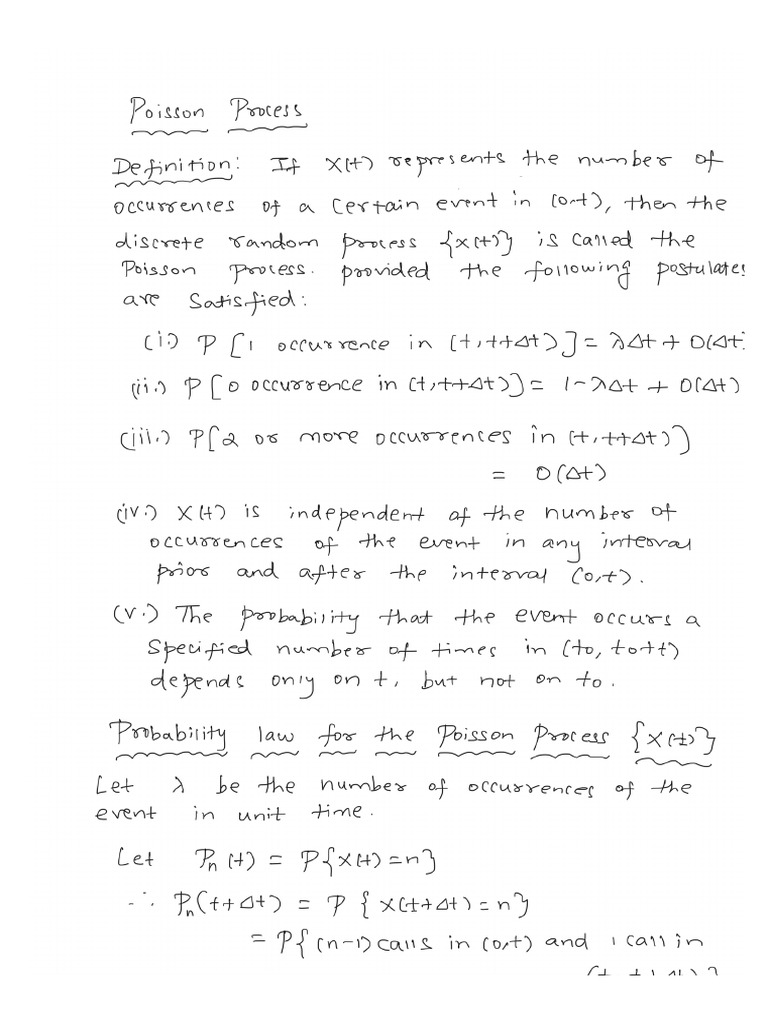 Poisson Process
Definition: If X(t) represents the number of
occurrences of a certain event in (0,t), then the
discrete random process {X(t)} is called the
Poisson process. provided the following postulates
are satisfied:
(i.) P [1 occurrence in (t,t+Δt)] = λΔt + O(Δt)
(ii.) P [0 occurrence in (t,t+Δt)] = 1-λΔt + O(Δt)
(iii.) P[2 or more occurrences in (t,t+Δt)]
= O(Δt)
(iv.) X(t) is independent of the number of
occurrences of the event in any interval
prior and after the interval (0,t).
(v.) The probability that the event occurs a
specified number of times in (to, to+t)
depends only on t, but not on to.
Probability law for the Poisson Process {X(t)}
Let λ be the number of occurrences of the
event in unit time.
Let Pn(t) = P{X(t)=n}
∴ Pn(t+Δt) = P {X(t+Δt)=n}
= P{(n-1) calls in (0,t) and 1 call in